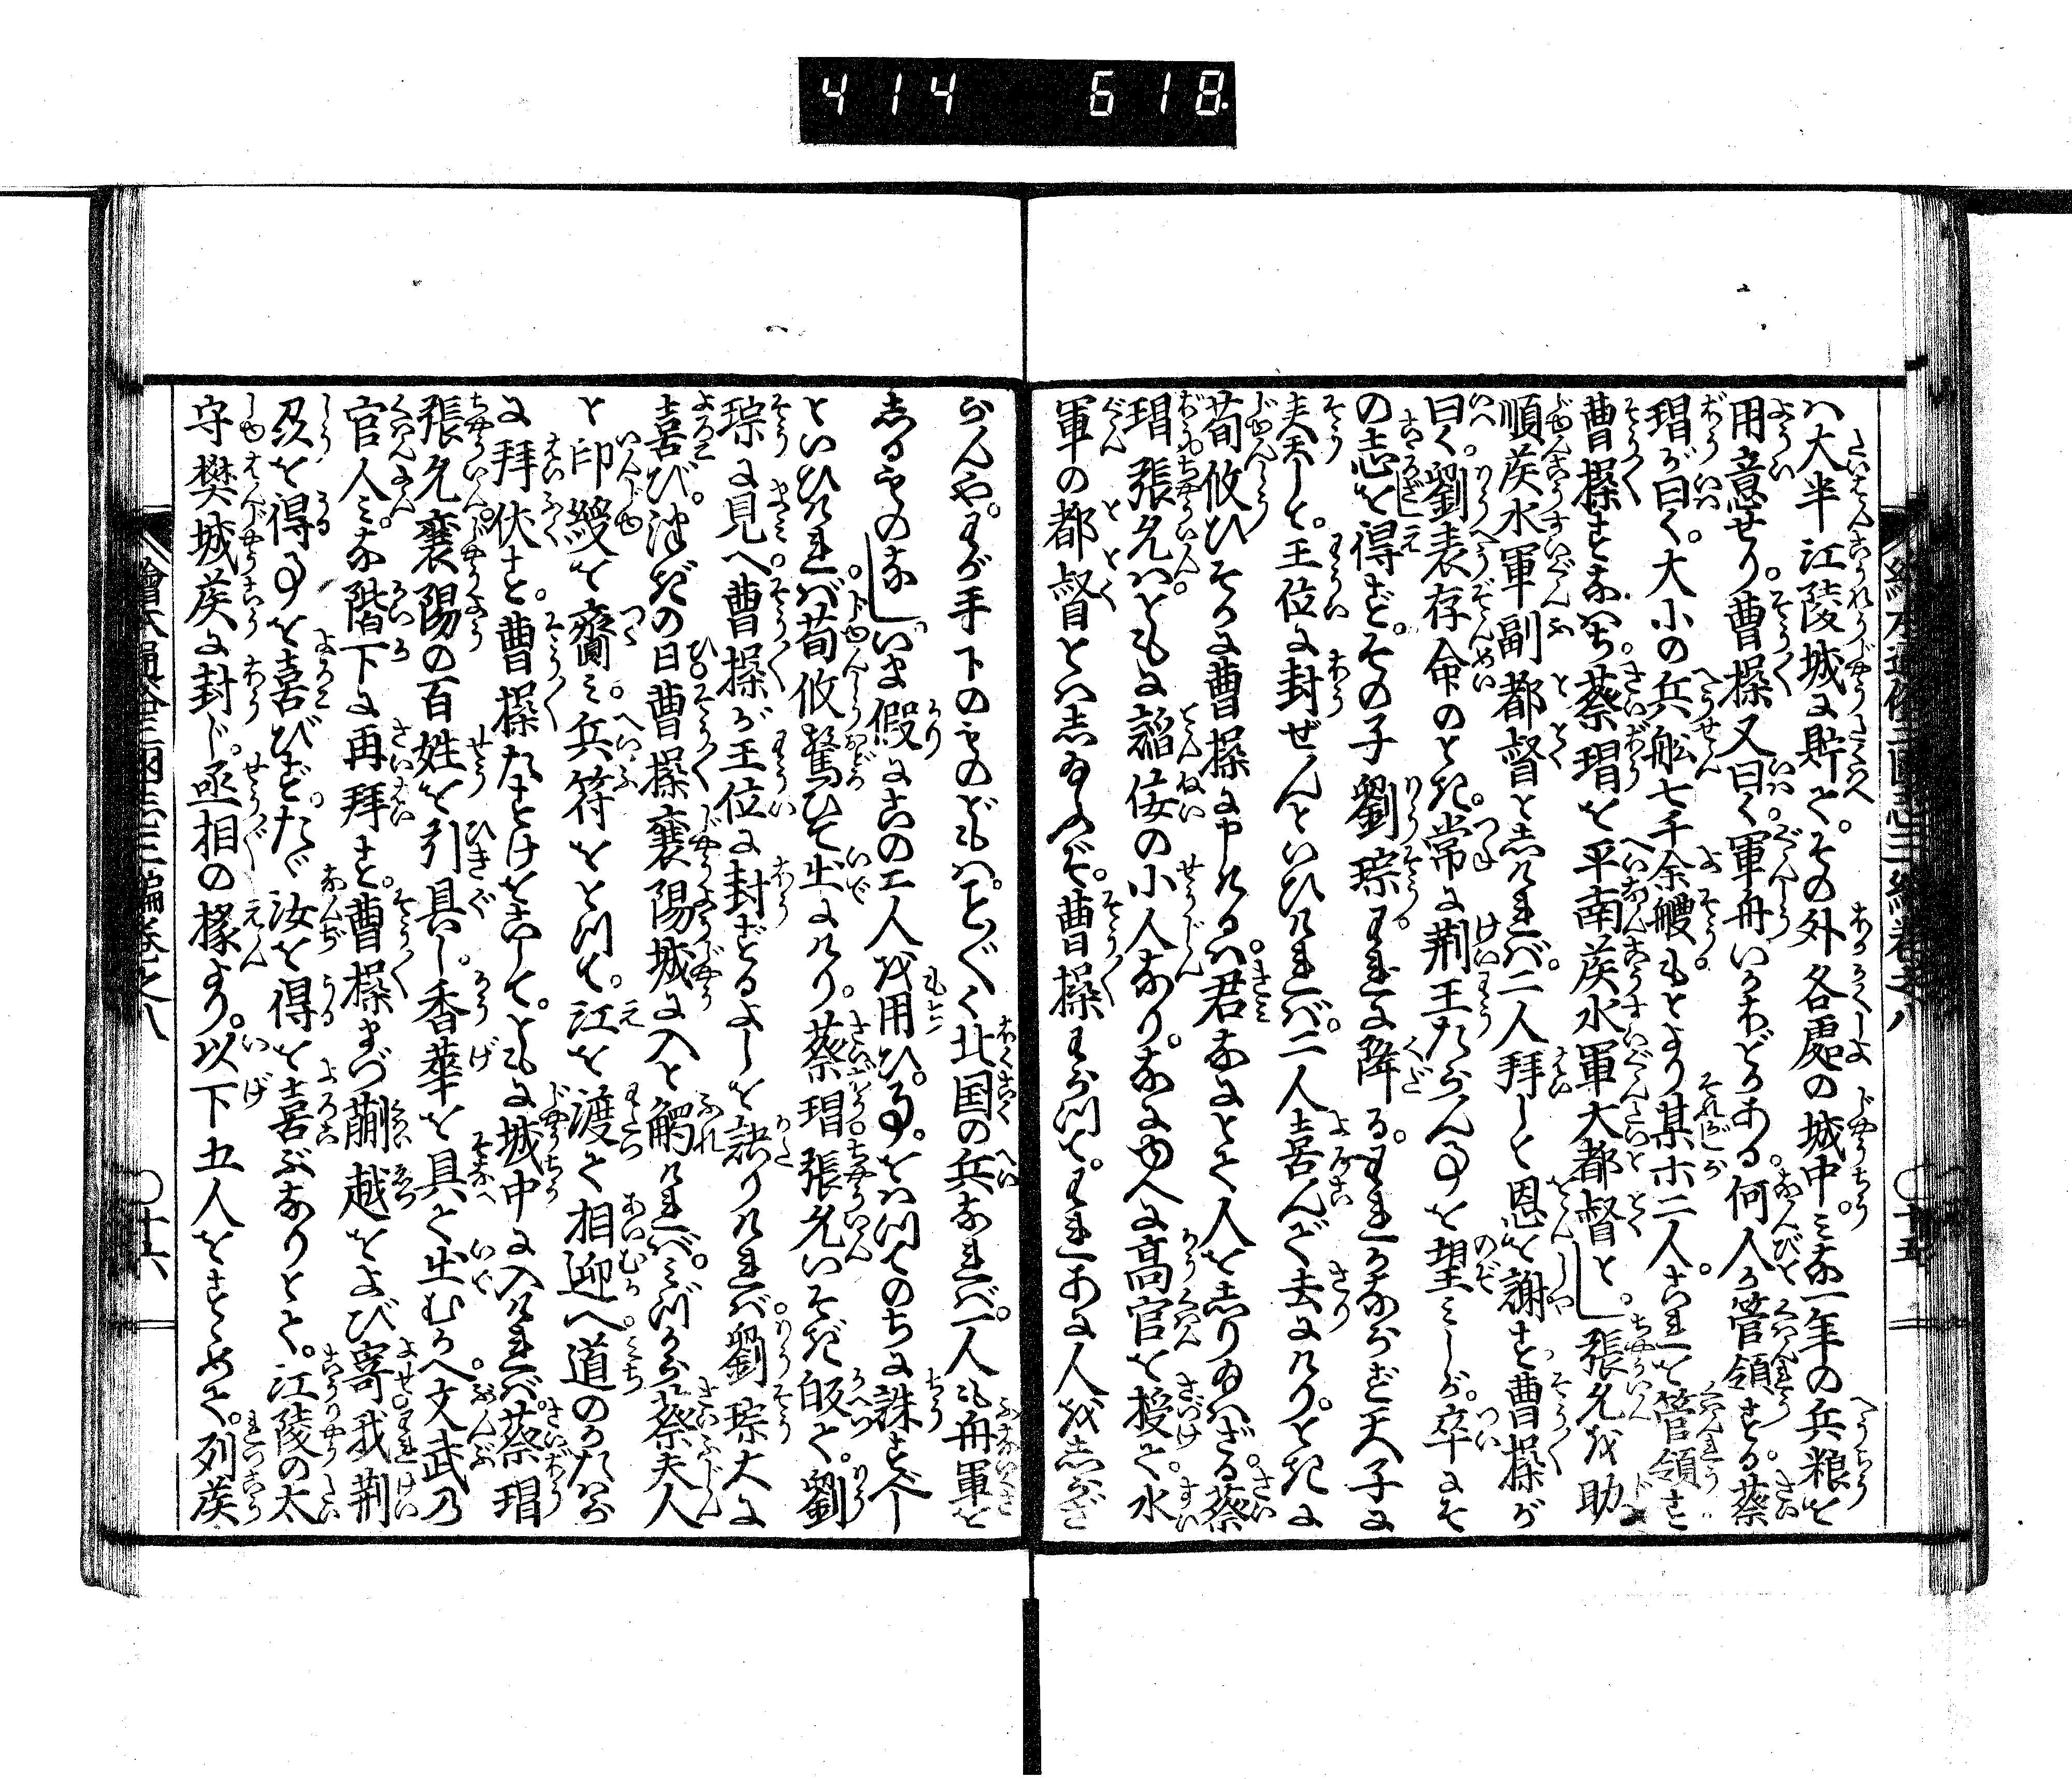 414 618
ハ大半江陵城に貯ふ。その外各處の城中。ミな一年の兵粮を
用意せり。曹操又曰く軍舟いかほどある。何人か管領する。蔡
瑁が曰く。大小の兵舩七千余艘。もとより某ホ二人。これを管領す
曹操すなハち。蔡瑁を平南侯水軍大都督と。張允を助
順侯水軍副都督としけれバ。二人拝して恩を謝す。曹操が
曰く。劉表存命のとき。常に荊王たらん事を望ミしが。卒にそ
の志を得ず。その子劉琮。われに降る。われかならず天子に
奏して。王位に封ぜんといひけれバ。二人喜んで去にけり。ときに
荀攸ひそかに曹操に申けるハ。君なにとて人をしり給ハざる。蔡
瑁張允ハ。ともに謟佞の小人なり。なにゆへに高官を授て。水
軍の都督とハし給ふぞ。曹操わらつて。われあに人をしらざ
らんや。わが手下のものどもハ。ことごとく北国の兵なれバ。一人も舟軍を
しるものなし。いま假にこの二人を用ひ。事をハつてのちに誅すべし
といひけれバ。荀攸驚ひて出にけり。蔡瑁張允いそぎ皈て。劉
琮に見へ曹操が王位に封ずるよしを訣りけれバ。劉琮大に
喜び。次の日曹操襄陽城に入と觸けれバ。ミづから蔡夫人
と印綬を齎ミ。兵符をとつて。江を渡て相迎へ道のかたハら
に拝伏す。曹操たすけをこして。ともに城中に入けれバ。蔡瑁
張允襄陽の百姓を引具し。香華を具て出むかへ。文武の
官人ミな階下に再拝す。曹操まづ蒯越をよび寄我荊
州を得る事を喜びず。たゞ汝を得を喜ぶなりとて。江陵の太
守樊城侯に封じ。丞相の掾より。以下五人をすゝめて。列侯